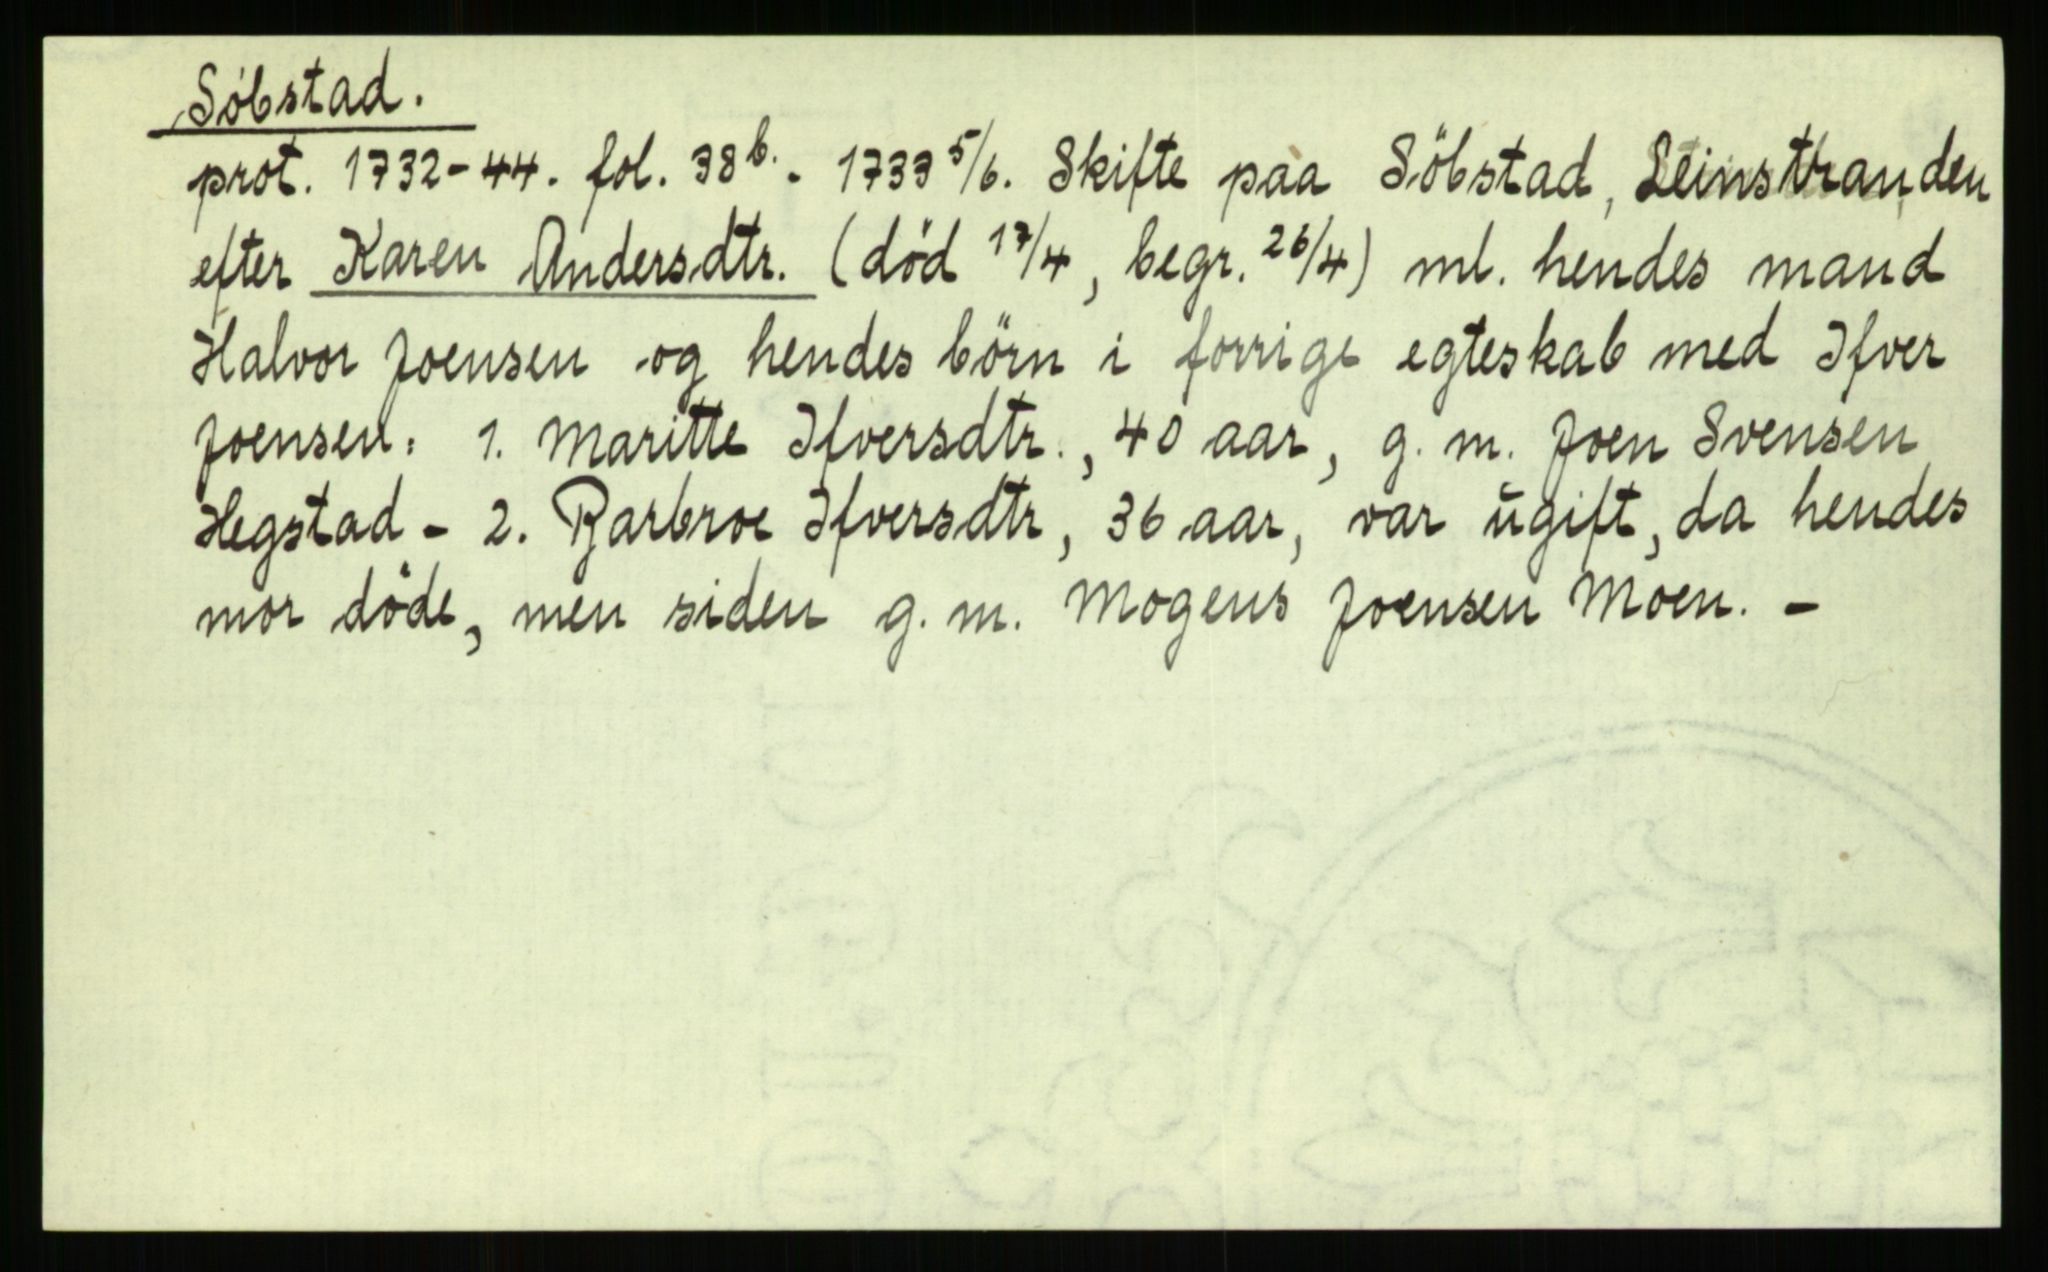 Söbstad.
prot. 1732-44. fol. 38b. - 1733 5/6. Skifte paa Söbstad, Leinstranden
efter Karen Andersdtr. (död 17/4, begr. 26/4) ml. hendes mand
Halvor Joensen og hendes börn i forrige egteskab med Ifver
Joensen: 1. Maritte Ifversdtr., 40 aar, g. m. Joen Svensen
Hegstad - 2. Barbroe Ifversdtr, 36 aar, var ŭgift, da hendes
mor döde, men siden g. m. Mogens Joensen Moen. -